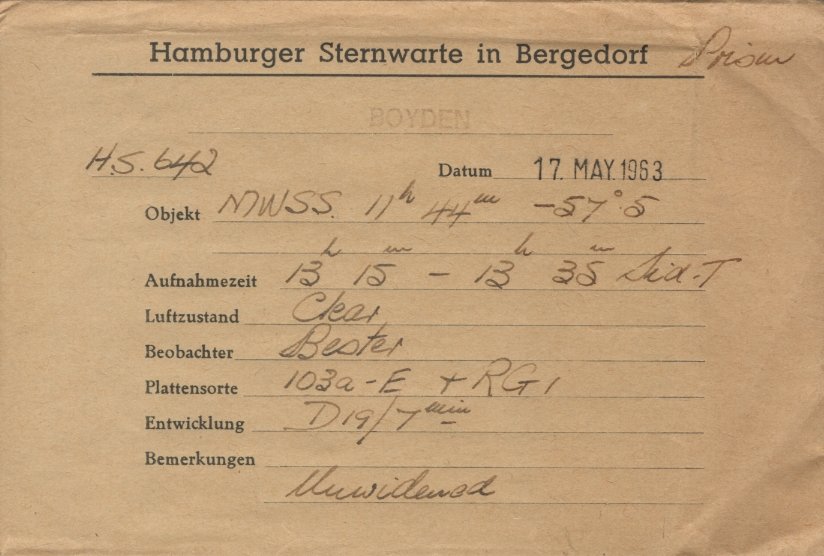 Hamburger Sternwarte in Bergedorf Prism
BOYDEN
H.S. 642 Datum 17. MAY. 1963
Objekt MWSS. 11h 44m -57°.5
Aufnahmezeit 13h 15m - 13h 35m Sid. T
Luftzustand Clear
Beobachter Bester
Plattensorte 103a-E + RG1
Entwicklung D19/7min
Bemerkungen
Unwidened